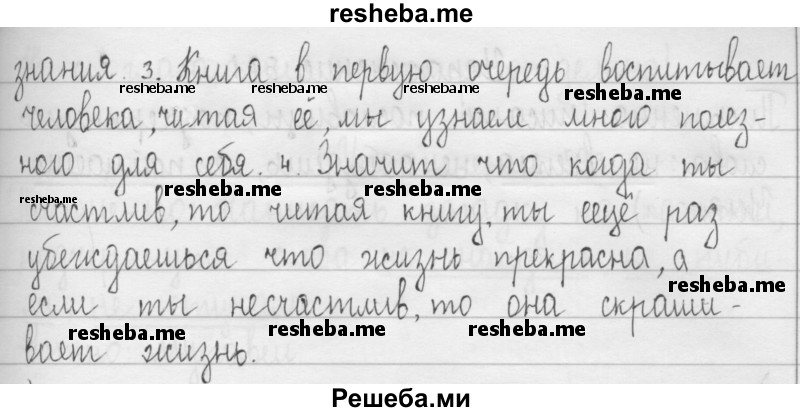 resheba.me
знания. 3. Книга в первую очередь воспитывает
resheba.me resheba.me
человека, читая её, мы узнаем много полез-
ного для себя. 4. Значит что когда ты
resheba.me resheba.me resheba.me
счастлив, то читая книгу, ты ещё раз
убеждаешься что жизнь прекрасна, а
resheba.me
если ты несчастлив, то она скраши-
resheba.me resheba.me
вает жизнь.
Решеба.ми